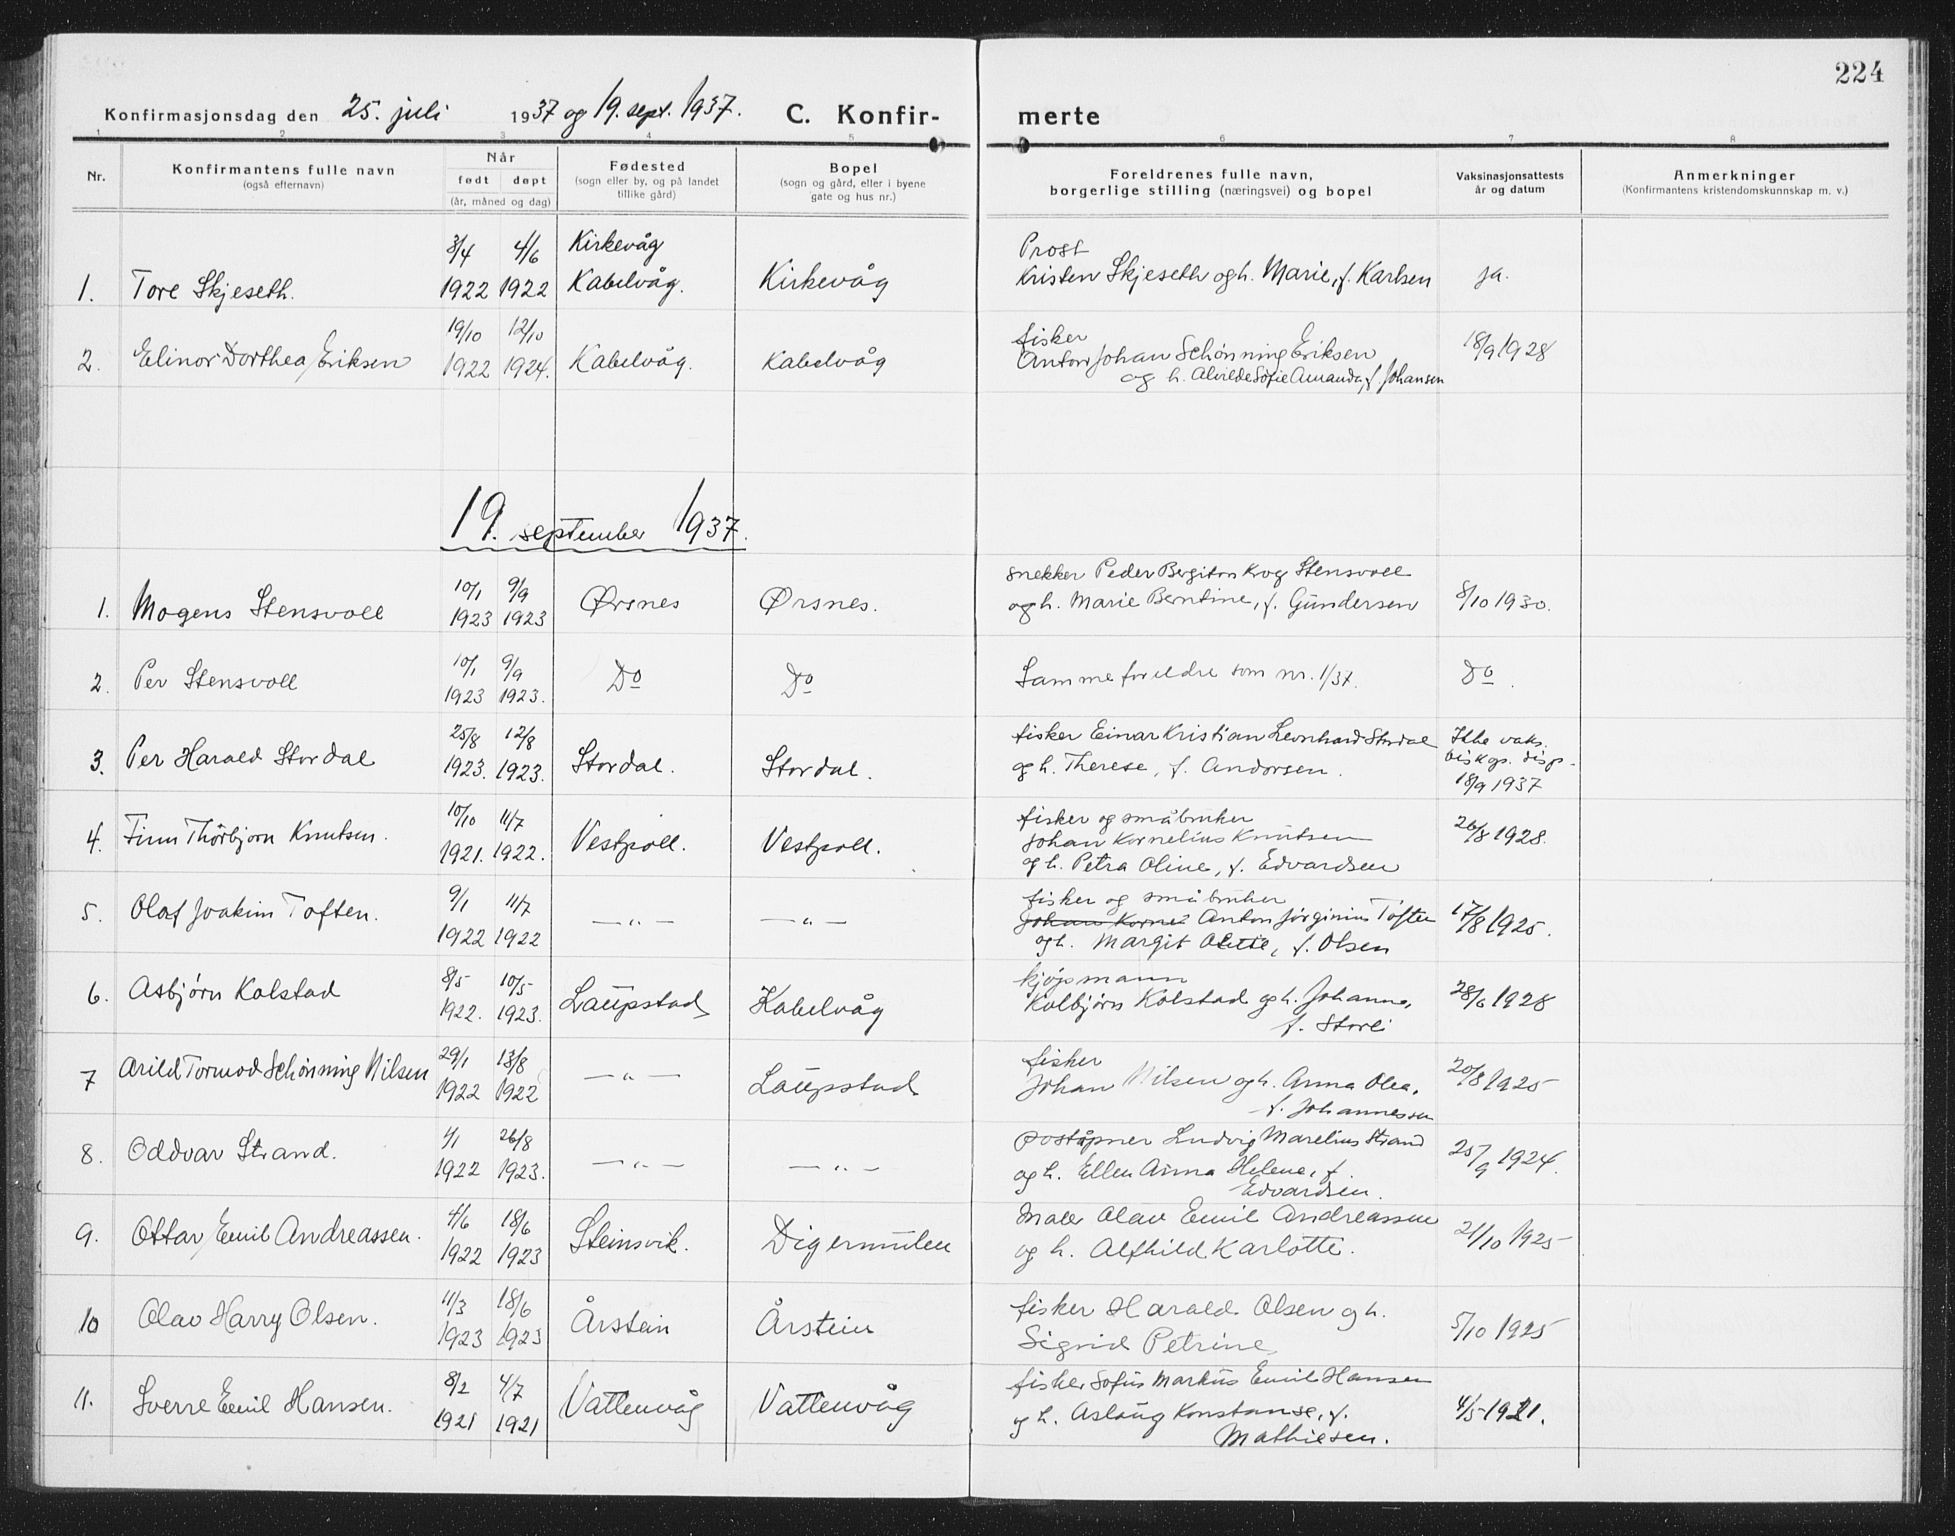 224
Konfirmasjonsdag den 25. juli 1937 og 19. sept. 1937. C. Konfir- merte
1 2 3 4 5 6 7 8
Nr. Konfirmantens fulle navn (også efternavn) Når født døpt (år, måned og dag) Fødested (sogn eller by, og på landet tillike gård) Bopel (sogn og gård, eller i byene gate og hus nr.) Foreldrenes fulle navn, borgerlige stilling (næringsvei) og bopel Vaksinasjonsattests år og datum Anmerkninger (Konfirmantens kristendomskunnskap m. v.)
3/4 4/6 Kirkevåg Prost
1. Tore Skjeseth. 1922 1922 Kabelvåg. Kirkevåg Kristen Skjeseth og h. Marie, f. Karlsen ja.
19/10 12/10 fisker
2. Elinor Dorthea Eriksen 1922 1924. Kabelvåg. Kabelvåg Anton Johan Schönning Eriksen 18/9 1928
og h. Alvilde Sofie Amanda, f. Johansen
19. september 1937.
10/1 9/9 snekker Peder Bergiton Krog Stensvoll
1. Mogens Stensvoll 1923 1923 Ørsnes Ørsnes. og h. Marie Berntine, f. Gundersen 8/10 1930.
10/1 9/9
2. Per Stensvoll 1923 1923. Do Do Samme foreldre som nr. 1/37. Do.
25/8 12/8 fisker Einar Kristian Leonhard Stordal Ikke vaks.
3. Per Harald Stordal 1923. 1923. Stordal. Stordal. og h. Therese, f. Andorsen. biskops. disp.
18/9 1937
10/10 11/7 fisker og småbruker
4. Finn Thorbjørn Knutsen. 1921. 1922. Vestpoll. Vestpoll. Johan Kornelius Knutsen 26/8 1928.
og h. Petra Oline, f. Edvardsen
9/1 11/7 fisker og småbruker
5. Olaf Joakim Toften. 1922 1922 — " — — " — Johan Korne Anton Jørginius Toften 17/8 1925.
og h. Margit Olette, f. Olsen
8/5 10/5 kjøpmann
6. Asbjørn Kolstad 1922. 1923. Laupstad Kabelvåg Kolbjørn Kolstad og h. Johanna, 28/6 1928
f. Storli
29/1 13/8 fisker
7 Arild Tormod Schönning Nilsen 1922 1922 — " — Laupstad Johan Nilsen og h. Anna Olea, 20/8 1925
f. Johannessen
1/1 26/8 poståpner Ludvig Marelius Strand
8. Oddvar Strand. 1922 1923. — " — — " — og h. Ellen Anna Helene, f. 25/9 1924.
Edvardsen.
4/6 18/6 Maler Olav Emil Andreassen
9. Ottar Emil Andreassen. 1922 1923 Steinsvik. Digermulen og h. Alfhild Karlotte. 21/10 1925
11/3 18/6 fisker Harald Olsen og h.
10 Olav Harry Olsen. 1923 1923 Årstein Årstein Sigrid Petrine, 5/10 1925
8/2 4/7 fisker Sofus Markus Emil Hansen
11. Sverre Emil Hansen. 1921 1921 Vattenvåg Vattenvåg og h. Aslaug Konstanse, f. 4/5 1921.
Mathiesen.